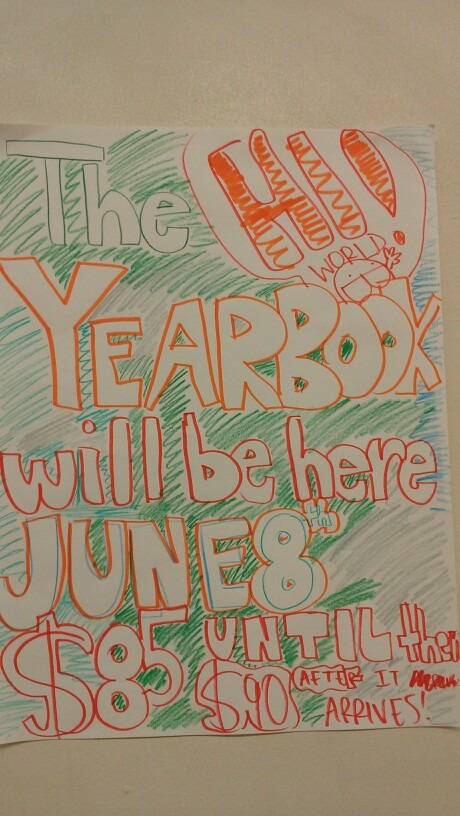 The HI!
WORLD
YEARBOOK
will be here
JUNE 8th
$85 UNTIL then
$90 AFTER IT
ARRIVES!